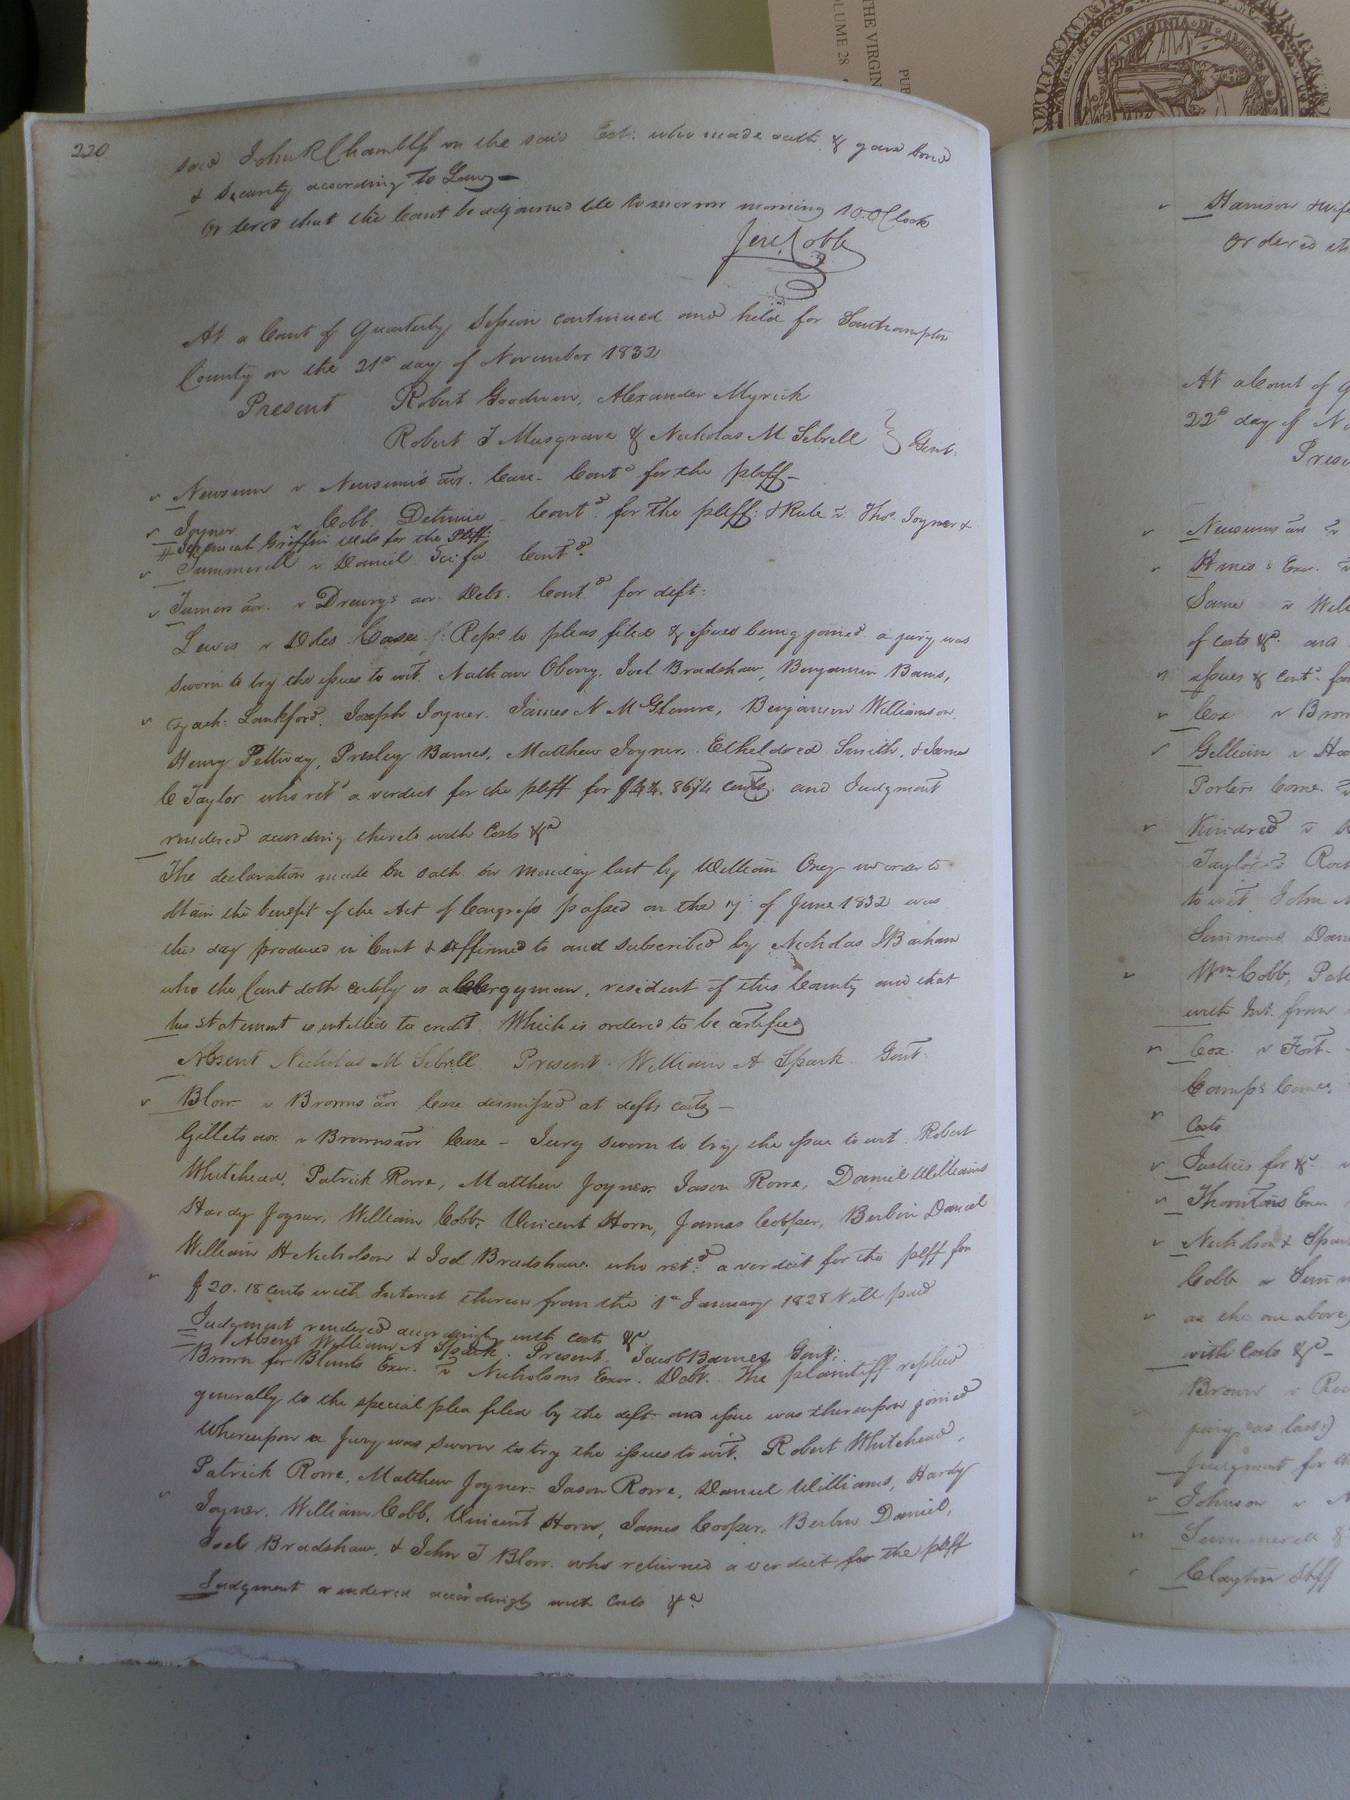 THE VIRGIN
OLUME 28
PUB
VIRGINIA · IN · AMERI
220
said John R Chambliss on the said Est. who made oath & gave bond
& Security according to Law —
Ordered that the Court be adjourned till tomorrow morning 10 O Clock
Jere. Cobb
At a Court of Quarterly Session continued and held for Southampton
County on the 21st day of November 1832
Present Robert Goodwin, Alexander Myrick
Robert T Musgrave & Nicholas M Sebrell } Gent.
Newsum v Newsum's aor. Case - Contd for the pltff -
Joyner v Cobb Detinue - Contd. for the pltff: & Rule v: Thos. Joyner &
# Jeremiah Griffin wits for the Pltff:
Summerell v Daniel Sci: fa Contd.
Turners aor. v Drurys aor. Debt. Contd for deft.
Lewis v Doles Case Reps. to pleas filed & issues being joined a jury was
sworn to try the issues to wit. Nathan Oberry, Joel Bradshaw, Benjamin Barns,
Zach: Lankford, Joseph Joyner. James N McGlemre, Benjamin Williamson,
Henry Pettway, Presley Barnes, Matthew Joyner, Etheldred Smith, & James
C Taylor who retd a verdict for the pltff for 86 1/4 cents and Judgment
rendered according thereto with Costs &c
The declaration made on oath on Monday last by William Oney in order to
obtain the benefit of the Act of Congress passed on the 7: of June 1832 was
this day produced in Court & affirmed to and subscribed by Nicholas Barham
who the Court doth certify is a Clergyman, resident of this County and that
his statement is intitled to credit. Which is ordered to be certified
Absent Nicholas M Sebrell. Present William A Spark Gent.
Blow v Browns aor Case dismissed at defts costs —
Gillets aor. v Browns aor Case - Jury sworn to try the issue to wit Robert
Whitehead, Patrick Rowe, Matthew Joyner Jason Rowe, Daniel Williams
Hardy Joyner, William Cobb, Vincent Horn, James Cooper, Berlin Daniel
William H Nicholson & Joel Bradshaw who retd: a verdict for the pltff for
$20.18 cents with Interest thereon from the 1st January 1828 till paid
Judgment rendered accordingly with costs &c
Absent William A Spark. Present. Jacob Barnes Gent:
Brown for Blunts Exor. v Nicholsons Exor. Debt. The plaintiff replied
generally to the special plea filed by the deft and issue was thereupon joined
Whereupon a Jury was sworn to try the issues to wit. Robert Whitehead,
Patrick Rowe, Matthew Joyner. Jason Rowe, Daniel Williams, Hardy
Joyner, William Cobb, Vincent Horn, James Cooper, Berlin Daniel,
Joel Bradshaw, & John T Blow. who returned a verdict for the pltff
Judgment rendered accordingly with Costs &c
Harrison & wife
Ordered th
At a Court of Q
22d day of No
Prese
Newsums aor v
Same v Will
of costs &c. and
issues & contd. for
Cox v Brow
Gilliam v Ha
Porters Come. v
Kindred v
Taylor
to wit John
Simmons Dan
Wm Cobb, Pat
with Int. from
Cox v Fort -
Costs
Justices for &c
Thorntons Exor
Nicholson & Spa
Cobb v Sim
as the one above
with Costs &c -
Brown v
jury as last:)
Judgment for th
Johnson v
Summerell &
Clayton